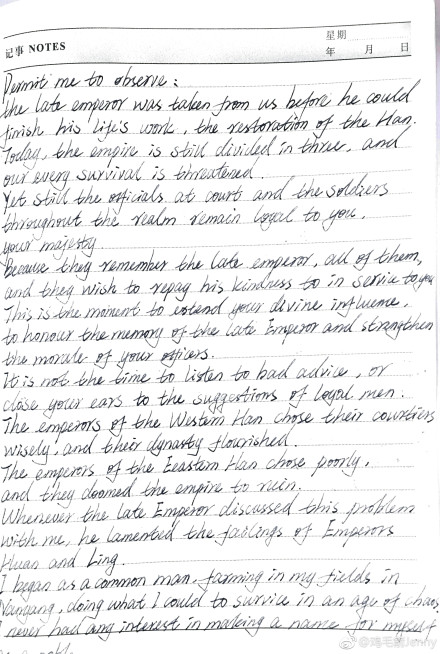 星期
记事 NOTES
年 月 日
Permit me to observe:
the late emperor was taken from us before he could
finish his life's work, the restoration of the Han.
Today, the empire is still divided in three, and
our every survival is threatened.
Yet still the officials at court and the soldiers
throughout the realm remain loyal to you,
your majesty.
Because they remember the late emperor, all of them,
and they wish to repay his kindness to in service to you
This is the moment to extend your divine influence,
to honour the memory of the late Emperor and strengthen
the morale of your officers.
It is not the time to listen to bad advice, or
close your ears to the suggestions of loyal men.
The emperors of the Western Han chose their courtiers
wisely, and their dynasty flourished.
The emperors of the Eeastern Han chose poorly,
and they doomed the empire to ruin.
Whenever the late Emperor discussed this problem
with me, he lamented the failings of Emperors
Huan and Ling.
I began as a common man, farming in my fields in
Nanyang, doing what I could to survive in an age of chaos.
I never had any interest in making a name for myself